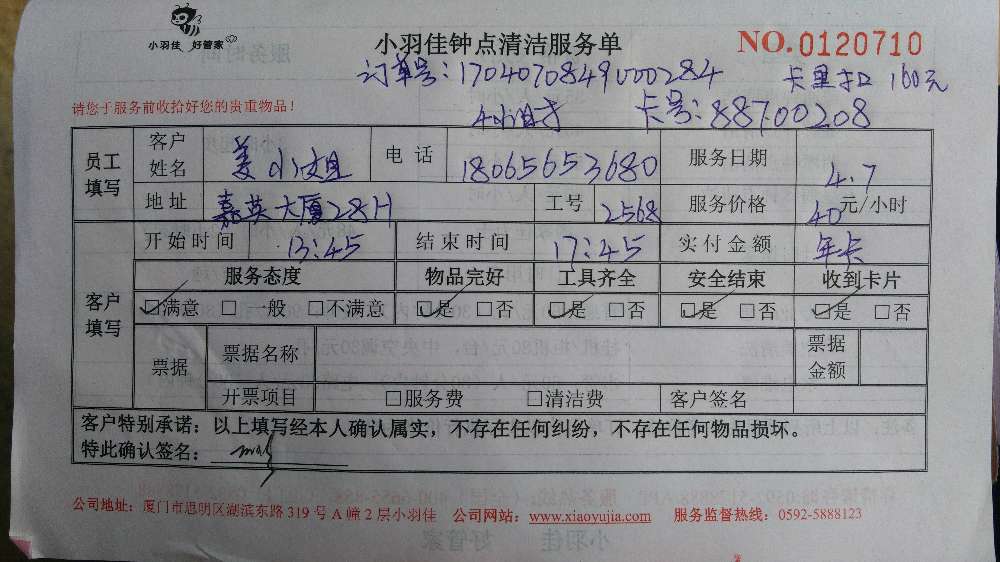 小羽佳 好管家
小羽佳钟点清洁服务单 NO.0120710
订单号:17040708491000284 卡里扣160元
请您于服务前收拾好您的贵重物品!
4小时 卡号:88700208
员工填写 客户姓名 姜小姐 电话 18065653680 服务日期 4.7
地址 嘉英大厦28H 工号 2568 服务价格 40元/小时
客户填写 开始时间 13:45 结束时间 17:45 实付金额 年卡
服务态度 物品完好 工具齐全 安全结束 收到卡片
☑满意 □一般 □不满意 ☑是 □否 ☑是 □否 ☑是 □否 ☑是 □否
票据 票据名称 票据金额
开票项目 □服务费 □清洁费 客户签名
客户特别承诺:以上填写经本人确认属实,不存在任何纠纷,不存在任何物品损坏。
特此确认签名:
公司地址:厦门市思明区湖滨东路319号A幢2层小羽佳 公司网站:www.xiaoyujia.com 服务监督热线:0592-5888123